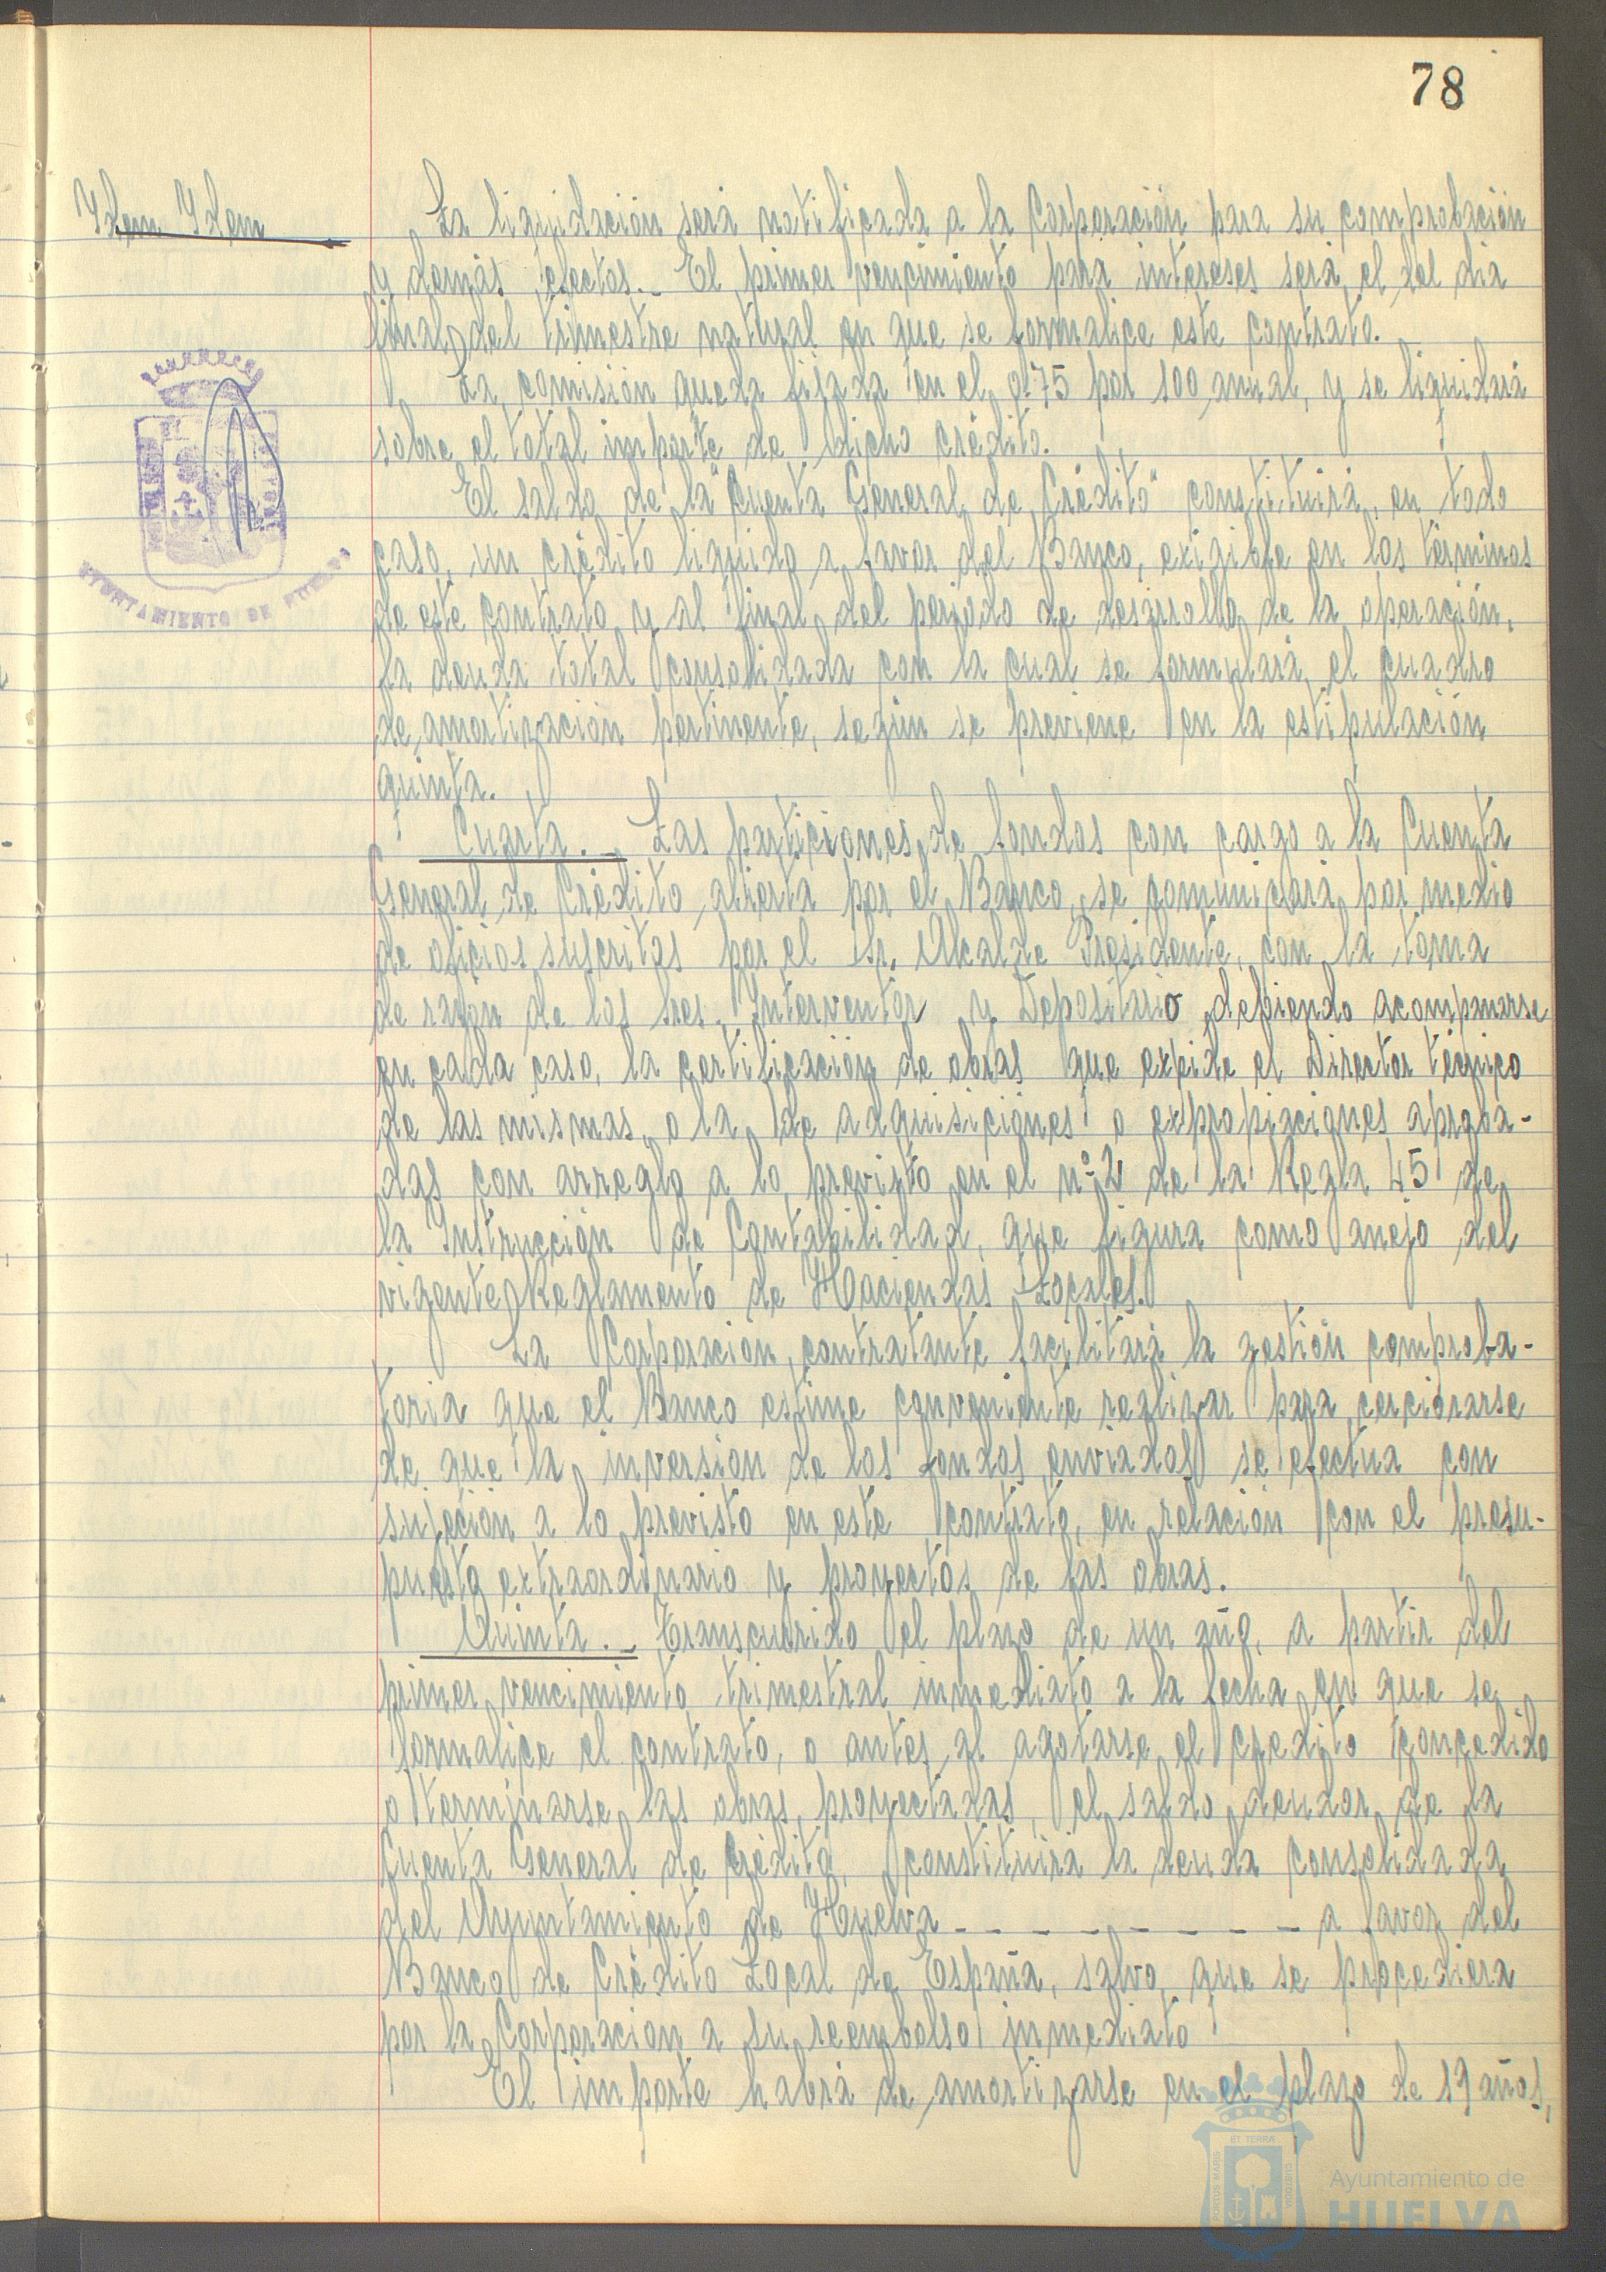 78
Idem Idem
La liquidación será notificada a la Corporación para su comprobación
y demás efectos._ El primer vencimiento para intereses será el del día
final del trimestre natural en que se formalice este contrato.
La comisión queda fijada en el 0'75 por 100 anual, y se liquidará
sobre el total importe de dicho crédito.
El saldo de la "Cuenta General de Crédito" constituirá, en todo
caso, un crédito líquido a favor del Banco, exigible en los términos
de este contrato y al final del período de desarrollo de la operación,
la deuda total consolidada con la cual se formulará el cuadro
de amortización pertinente, según se previene en la estipulación
quinta.
Cuarta._ Las particiones de fondos con cargo a la Cuenta
General de Crédito abierta por el Banco, se comunicará por medio
de oficios suscritos por el Sr. Alcalde Presidente, con la toma
de razón de los Sres. Interventor y Depositario debiendo acompañarse
en cada caso, la certificación de obras que expide el Director técnico
de las mismas, o la de adquisiciones o expropiaciones aproba-
das con arreglo a lo previsto en el nº 2 de la Regla 45 de
la Instrucción de Contabilidad, que figura como anejo del
vigente Reglamento de Haciendas Locales.
La Corporación contratante facilitará la gestión comproba-
toria que el Banco estime conveniente realizar para cerciorarse
de que la inversión de los fondos enviados se efectúa con
sujeción a lo previsto en este contrato, en relación con el presu-
puesto extraordinario y proyectos de las obras.
Quinta._ Transcurrido el plazo de un año, a partir del
primer vencimiento trimestral inmediato a la fecha en que se
formalice el contrato, o antes al agotarse el crédito concedido
o terminarse las obras proyectadas, el saldo deudor de la
Cuenta General de Crédito, constituirá la deuda consolidada
del Ayuntamiento de Huelva - - - - - - - - - - a favor del
Banco de Crédito Local de España, salvo que se procediera
por la Corporación a su reembolso inmediato
El importe habrá de amortizarse en el plazo de 19 años,
AYUNTAMIENTO DE HUELVA
PORTUS MARIS ET TERRAE CUSTODIA
Ayuntamiento de
HUELVA